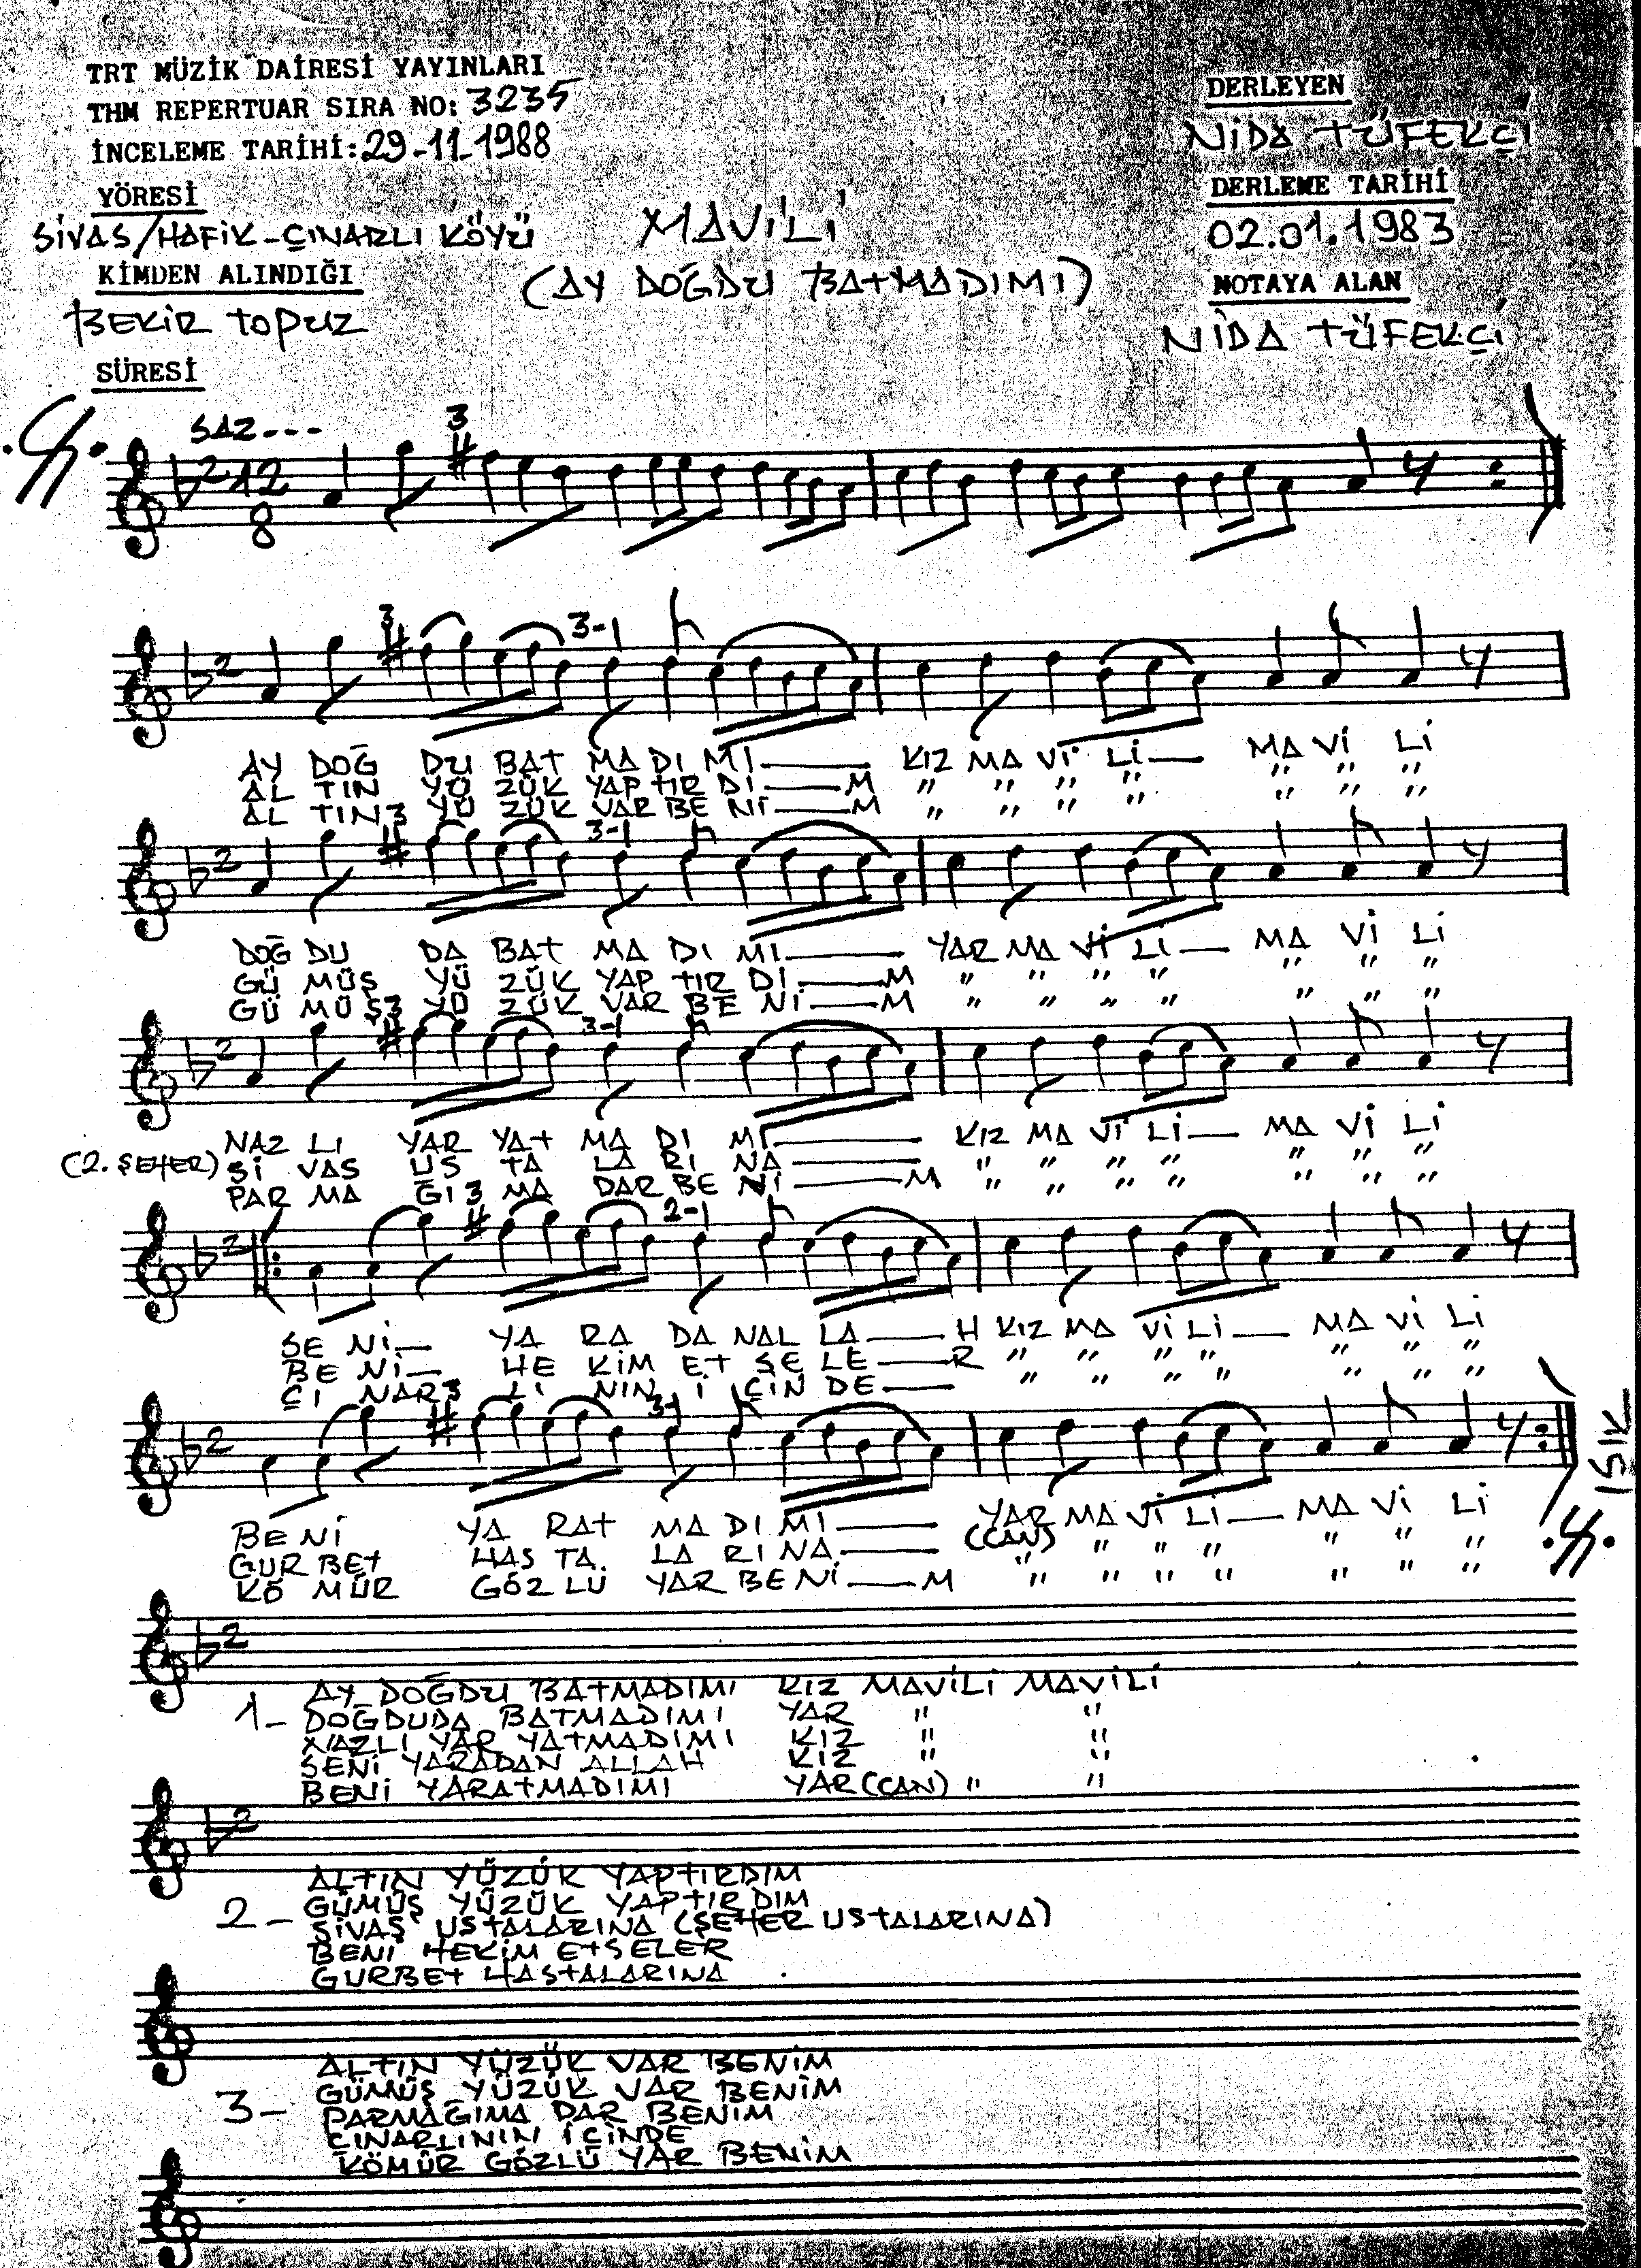 TRT MÜZİK DAİRESİ YAYINLARI
THM REPERTUAR SIRA NO: 3235
İNCELEME TARİHİ: 29-11-1988
YÖRESİ
SİVAS/HAFİK-ÇINARLI KÖYÜ
KİMDEN ALINDIĞI
BEKİR TOPUZ
SÜRESİ
MAVİLİ
(AY DOĞDU BATMADIMI)
DERLEYEN
NİDA TÜFEKÇİ
DERLEME TARİHİ
02.01.1983
NOTAYA ALAN
NİDA TÜFEKÇİ
SAZ---
3
2 12
8
2 3 3-1
AY DOĞ DU BAT MA DI MI—— KIZ MA Vİ Lİ— MA Vİ Lİ
AL TIN YÜ ZÜK YAP TIR DI——M " " " " " " "
AL TIN YÜ ZÜK VAR BE Nİ——M " " " " " " "
2 3 3-1
DOĞ DU DA BAT MA DI MI—— YAR MA Vİ Lİ— MA Vİ Lİ
GÜ MÜŞ YÜ ZÜK YAP TIR DI——M " " " " " " "
GÜ MÜŞ YÜ ZÜK VAR BE Nİ——M " " " " " " "
2 3 3-1
NAZ LI YAR YAT MA DI MI—— KIZ MA Vİ Lİ— MA Vİ Lİ
(2. ŞEHER) Sİ VAS US TA LA RI NA—— " " " " " " "
PAR MA ĞI MA DAR BE Nİ——M " " " " " " "
2 3 2-1
SE Nİ— YA RA DA NAL LA——H KIZ MA Vİ Lİ— MA Vİ Lİ
BE Nİ— HE KİM ET SE LE——R " " " " " " "
ÇI NAR LI NIN İ ÇİN DE—— " " " " " " "
2 3 3-1
BE Nİ YA RAT MA DI MI—— YAR MA Vİ Lİ— MA Vİ Lİ
(CAN)
GUR BET HAS TA LA RI NA—— " " " " " " "
KÖ MÜR GÖZ LÜ YAR BE Nİ——M " " " " " " "
IŞIK
2
AY DOĞDU BATMADIMI KIZ MAVİLİ MAVİLİ
1- DOĞDUDA BATMADIMI YAR " "
NAZLI YAR YATMADIMI KIZ " "
SENİ YARADAN ALLAH KIZ " "
BENİ YARATMADIMI YAR(CAN) " "
2
ALTIN YÜZÜK YAPTIRDIM
2- GÜMÜŞ YÜZÜK YAPTIRDIM
SİVAS USTALARINA (ŞEHER USTALARINA)
BENİ HEKİM ETSELER
GURBET HASTALARINA
ALTIN YÜZÜK VAR BENİM
3- GÜMÜŞ YÜZÜK VAR BENİM
PARMAĞIMA DAR BENİM
ÇINARLININ İÇİNDE
KÖMÜR GÖZLÜ YAR BENİM